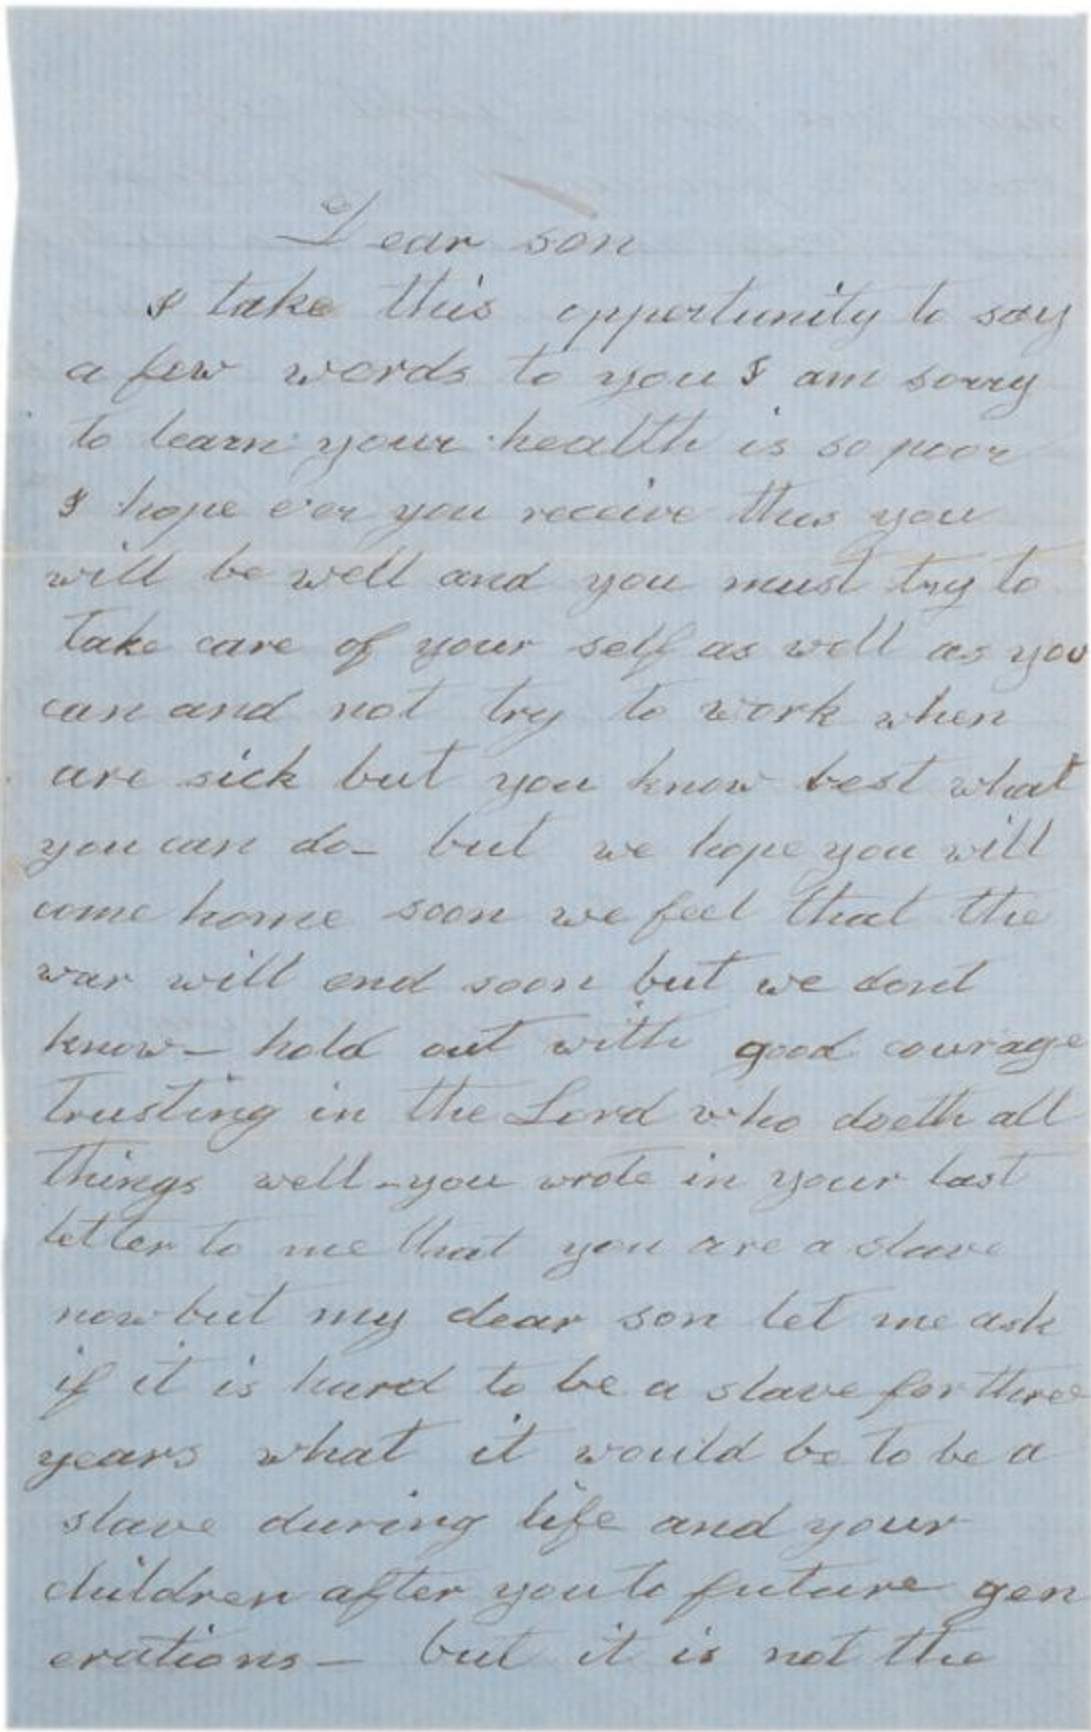 Dear son
I take this opportunity to say
a few words to you I am sorry
to learn your health is so poor
I hope ever you receive this you
will be well and you must try to
take care of your self as well as you
can and not try to work when
are sick but you know best what
you can do - but we hope you will
come home soon we feel that the
war will end soon but we dont
know - hold out with good courage
trusting in the Lord who doeth all
things well - you wrote in your last
letter to me that you are a slave
now but my dear son let me ask
if it is hard to be a slave for three
years what it would be to be a
slave during life and your
children after you to future gen
erations - but it is not the